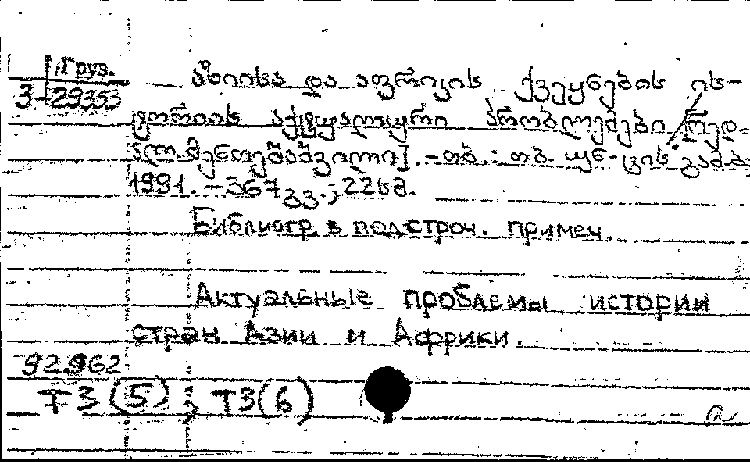 Груз.
3-29353
აზიისა და აფრიკის ქვეყნების ის-
ტორიის აქტუალური პრობლემები /რედ.
ალ. მენთეშაშვილი/. – თბ.: თბ. უნ-ტის გამ-ბა,
1991. – 367 გვ.; 22 სმ.
Библиогр. в подстроч. примеч.
Актуальные проблемы истории
стран Азии и Африки.
92.962
Т3(5) ; Т3(6)